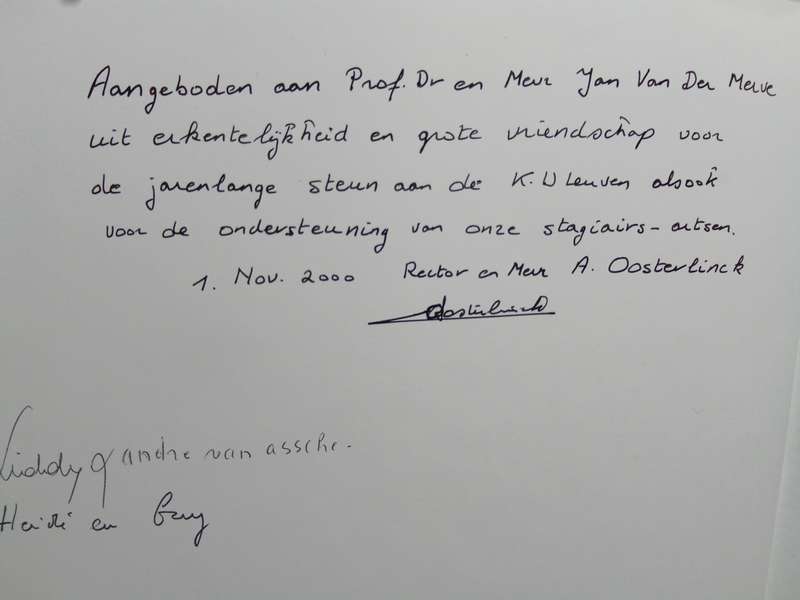 Aangeboden aan Prof. Dr en Mevr Jan Van Der Merve
uit erkentelijkheid en grote vriendschap voor
de jarenlange steun aan de K.U Leuven alsook
voor de ondersteuning van onze stagiairs-artsen.
1. Nov. 2000 Rector en Mevr A. Oosterlinck
Oosterlinck
andre van assche.
Heidi en Guy